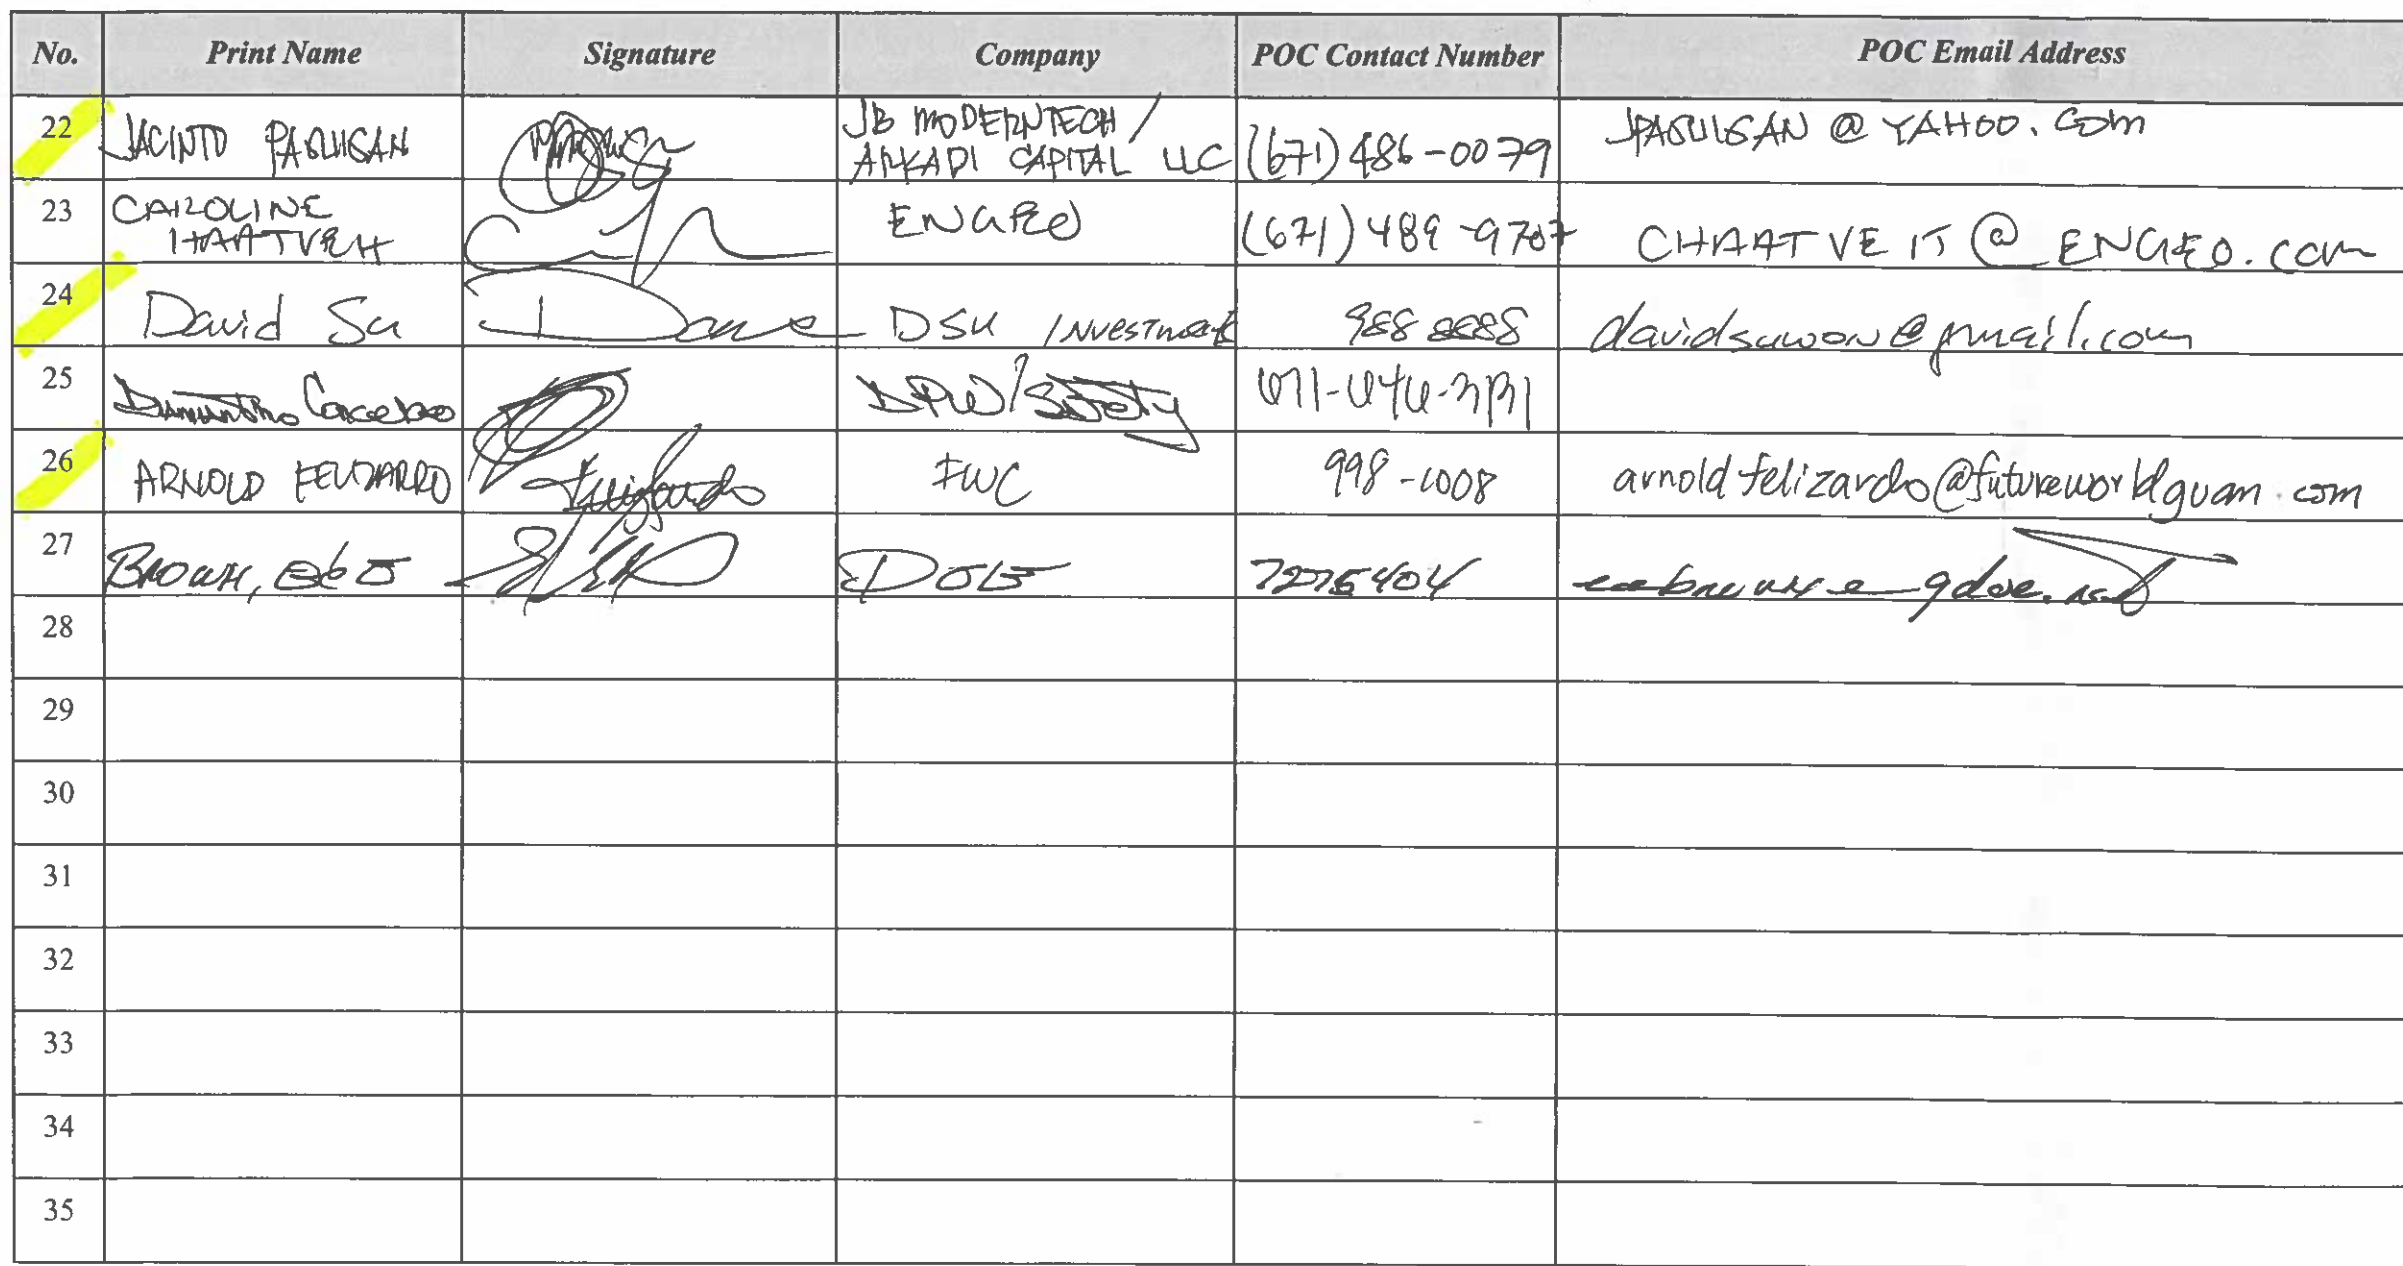 No. Print Name Signature Company POC Contact Number POC Email Address
22 JACINTO PASULISAN JB MODERNTECH / ARKADI CAPITAL LLC (671) 486-0079 JPASULISAN @ YAHOO.COM
23 CAROLINE HAATVEIT ENGEO (671) 489-9707 CHAATVEIT @ ENGEO.com
24 David Su DSU Investment 988 8888 davidsuwon@gmail.com
25 DPW/Safety
26 ARNOLD FELIZARDO FWC 998-1008 arnoldfelizardo@futureworldguam.com
27 BROWN, 7275404
28
29
30
31
32
33
34
35